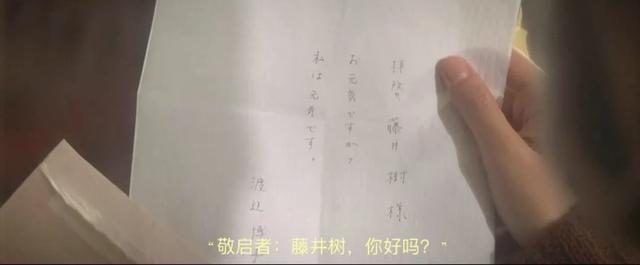 拝啓 藤井樹様
お元気ですか?
私は元気です。
渡辺博子
“敬启者：藤井树，你好吗？”